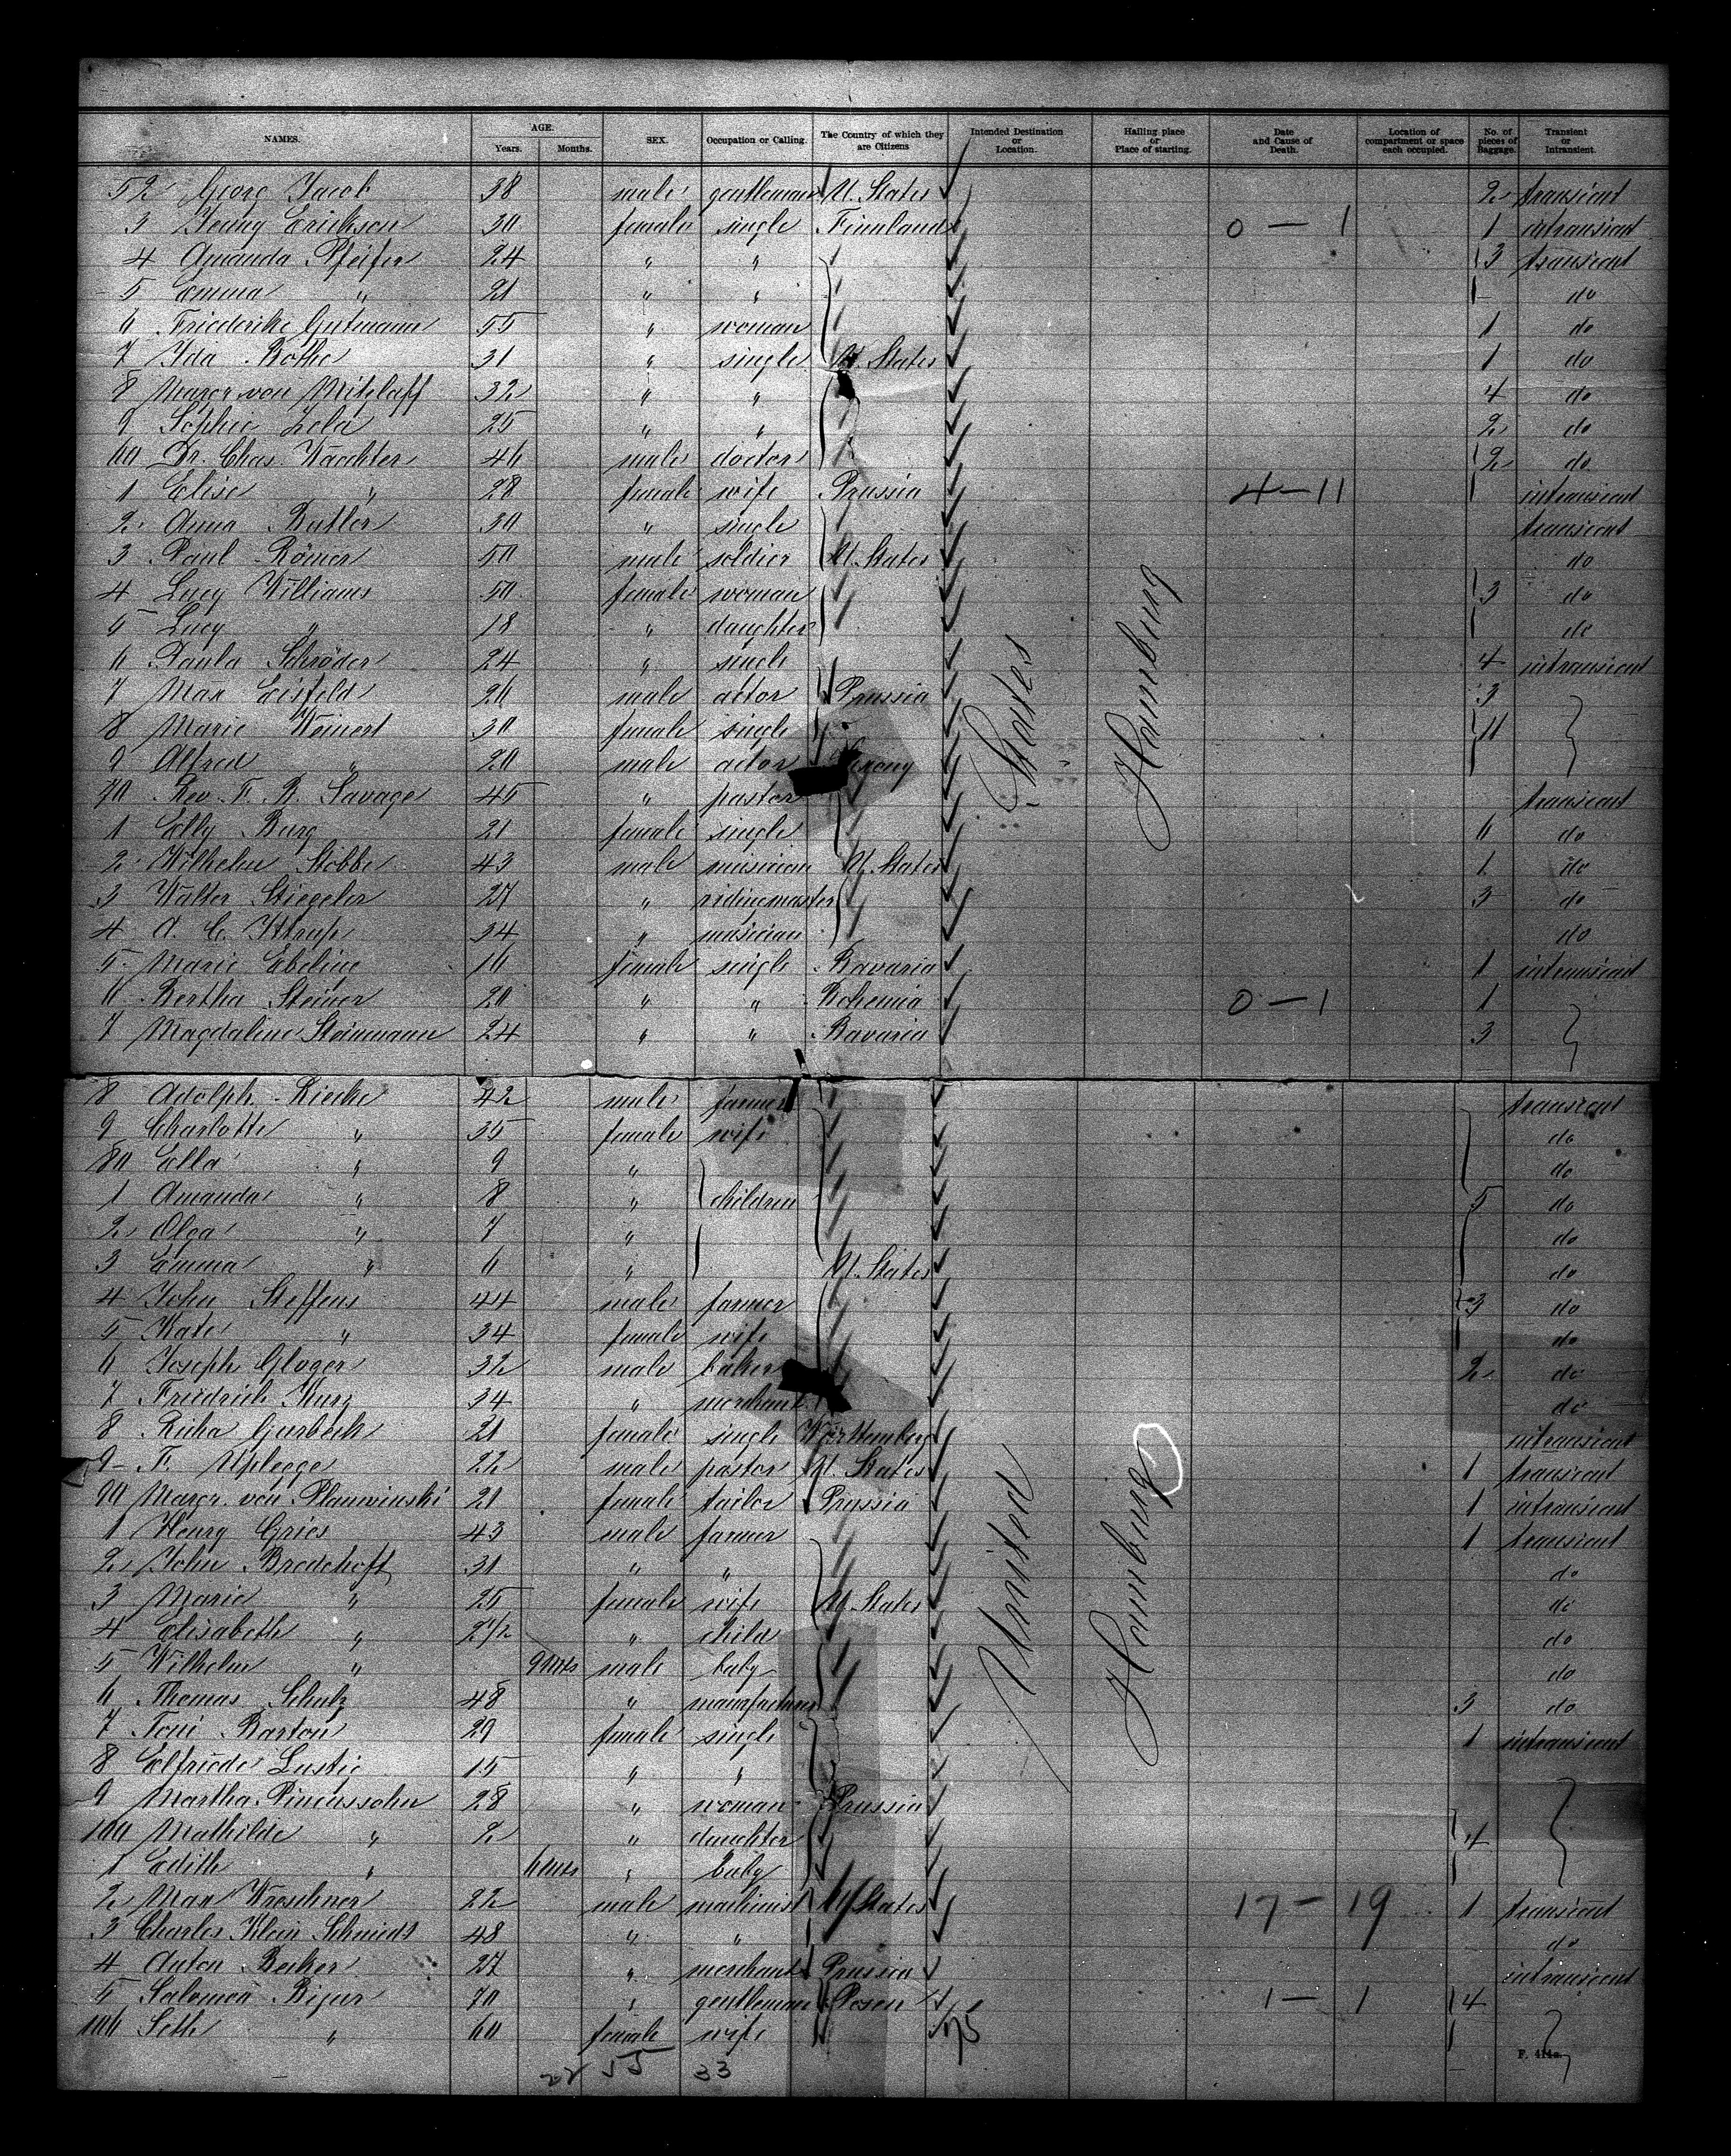 NAMES. AGE. Years. Months. SEX. Occupation or Calling. The Country of which they are Citizens Intended Destination or Location. Hailing place or Place of starting. Date and Cause of Death. Location of compartment or space each occupied. No. of pieces of Baggage. Transient or Intransient.
52 Georg Jacob 38 male gentleman U. States 2 transient
3 Jenny Erickson 30 female single Finnland 0 — 1 1 intransient
4 Amanda Pfeifer 24 " " 3 transient
5 Emma " 21 " " do
6 Friederike Gutmann 55 " woman 1 do
7 Ida Rothe 31 " single U. States 1 do
8 Margr. von Mitzlaff 32 " " 4 do
9 Sophie Zela 25 " " 2 do
60 Dr. Chas. Waechter 46 male doctor 2 do
1 Elise " 28 female wife Prussia 4 — 11 intransient
2 Anna Butler 30 " single transient
3 Paul Römer 50 male soldier U. States do
4 Lucy Williams 50 female woman 3 do
5 Lucy " 18 " daughter do
6 Paula Schröder 24 " single 4 intransient
7 Max Eisfeld 26 male actor Prussia 3
8 Marie Weinert 30 female single 11
9 Alfred " 20 male actor Saxony
70 Rev. T. R. Savage 45 " pastor transient
1 Elly Burg 21 female single 6 do
2 Wilhelm Stobbe 43 male musician U. States 1 do
3 Walter Stiegeler 27 " ridingmaster 3 do
4 A. C. Ittrup 34 " musician do
5 Marie Ebeling 16 female single Bavaria 1 intransient
6 Bertha Steiner 20 " " Bohemia 0 — 1 1
7 Magdaline Steinmann 24 " " Bavaria 3
8 Adolph Riecke 42 male farmer transient
9 Charlotte " 35 female wife do
80 Ella " 9 " do
1 Amanda " 8 " children 5 do
2 Olga " 7 " do
3 Emma " 6 " U. States do
4 John Steffens 44 male farmer 3 do
5 Kate " 34 female wife do
6 Joseph Gloger 32 male baker 2 do
7 Friedrich Kurz 34 " merchant do
8 Rieka Gurbeck 21 female single Württemberg intransient
9 F. Uplegge 22 male pastor U. States 1 transient
90 Margr. von Plauwinski 21 female tailor Prussia 1 intransient
1 Henry Gries 43 male farmer 1 transient
2 John Bredehoft 31 " " do
3 Marie " 25 female wife U. States do
4 Elisabeth " 2 1/2 " child do
5 Wilhelm " 9 mts male baby do
6 Thomas Schulz 48 " manufacturer 3 do
7 Toni Barton 29 female single 1 intransient
8 Elfriede Lustig 15 " "
9 Martha Pincussohn 28 " woman Prussia
100 Mathilde " 2 " daughter 4
1 Edith " 6 mts " baby
2 Max Wreschner 22 male machinist U. States 17 — 19 1 transient
3 Charles Klein Schmidt 48 " " do
4 Anton Becker 27 " merchant Prussia intransient
5 Salomon Bijur 70 " gentleman Posen 1 — 1 4
106 Seth " 60 female wife
22 55 33
United States
Hamburg
Hamburg